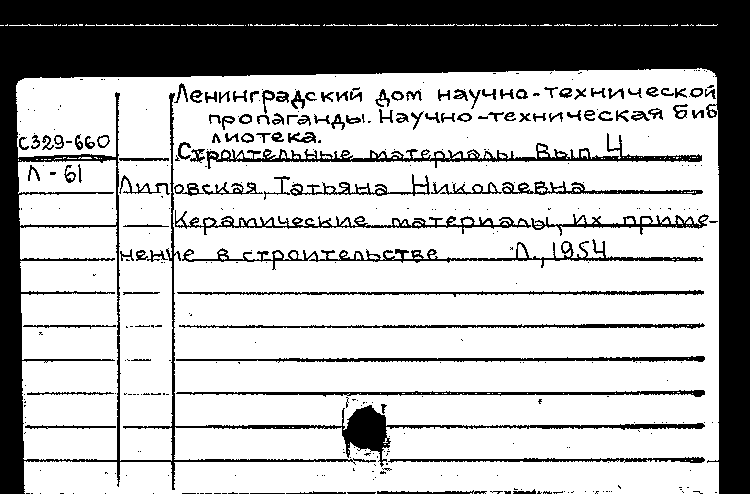 Ленинградский дом научно-технической
пропаганды. Научно-техническая биб
лиотека.
С329-660
Строительные материалы. Вып. 4
Л-61
Липовская, Татьяна Николаевна
Керамические материалы, их приме-
нение в строительстве. Л., 1954